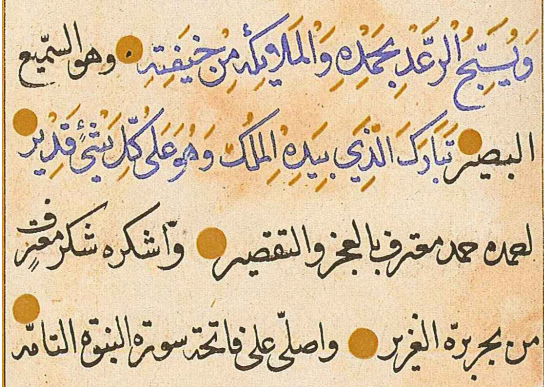 وَيُسَبِّحُ الرَّعْدُ بِحَمْدِهِ وَالمَلَايِكَةُ مِنْ خِيفَتِهِ وهو السَّمِيع
البصير تَبَارَكَ الَّذِي بِيَدِهِ المُلْكُ وَهُوَ عَلَى كُلِّ شَيْءٍ قَدِيرٌ
احمده حمد معترف بالعجز والتقصير وأشكره شكر مغترف
من بحر بره الغزير واصلّى على فاتحة سورة النبوّة التامّة